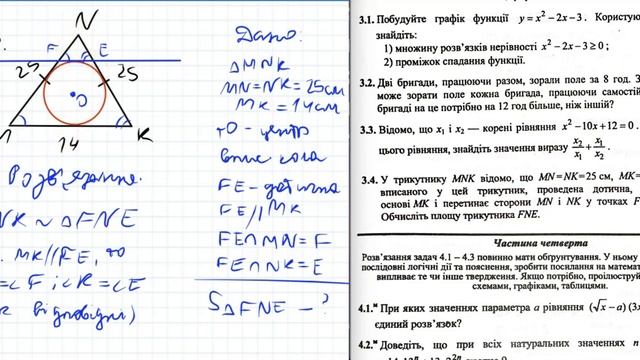 N
F
E
25
25
O
K
14
Дано:
△MNK
MN=NK=25см
MK=14см
Розв'язання.
NK ~ △FNE
FE - дотична
FE||MK
FE∩MN=F
FE∩NK=E
S△FNE - ?
MK||FE, то
=∠F і ∠K=∠E
3.1. Побудуйте графік функції y=x²-2x-3.
знайдіть:
1) множину розв'язків нерівності x²-2x-3≥0;
2) проміжок спадання функції.
3.2. Дві бригади, працюючи разом, зорали поле за 8 год. З
може зорати поле кожна бригада, працюючи
бригаді на це потрібно на 12 год більше, ніж іншій?
3.3. Відомо, що x₁ і x₂ — корені рівняння x²-10x+12=0.
цього рівняння, знайдіть значення виразу x₂/x₁ + x₁/x₂.
3.4. У трикутнику MNK відомо, що MN=NK=25 см, MK=
вписаного у цей трикутник, проведена дотична,
основі MK і перетинає сторони MN і NK у точках F
Обчисліть площу трикутника FNE.
Частина четверта
Розв'язання задач 4.1 – 4.3 повинно мати обґрунтування. У ньому
послідовні логічні дії та пояснення, зробити посилання на математ
випливає те чи інше твердження. Якщо потрібно, проілюструй
схемами, графіками, таблицями.
4.1.ᴹ При яких значеннях параметра a рівняння (√x-a)(3x
єдиний розв'язок?
4.2.ᴹ Доведіть, що при всіх натуральних значеннях n